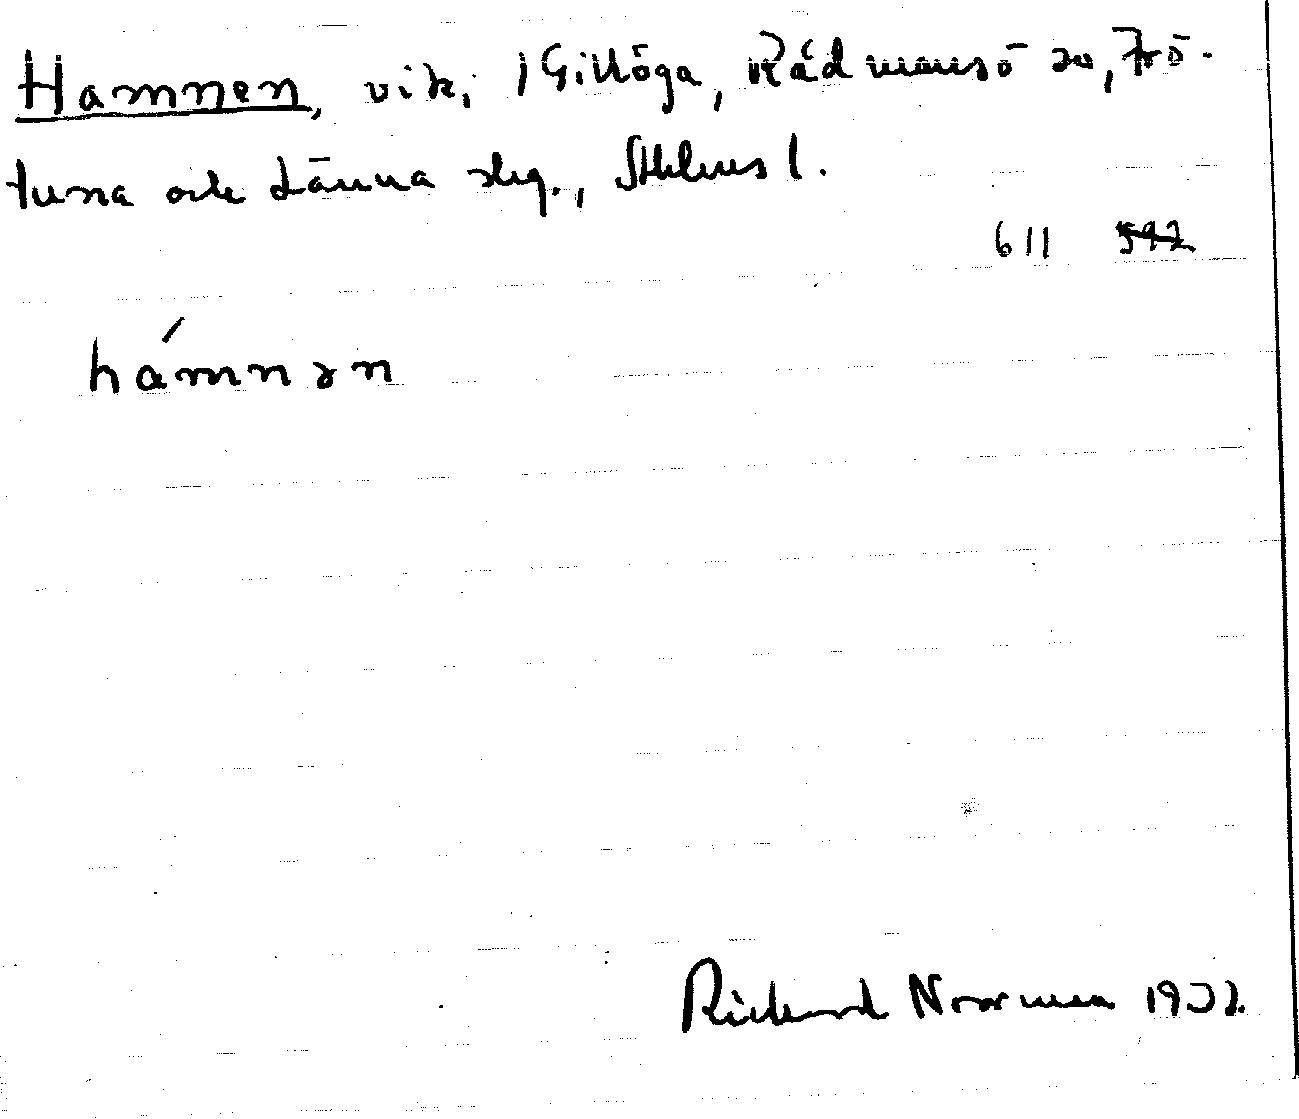 Hamnen, vik, i Gillöga, Rådmansö sn, Frö-
tuna och Länna skg., Sthlms l.
611 592
hámnən
Rickard Norrman 1932.